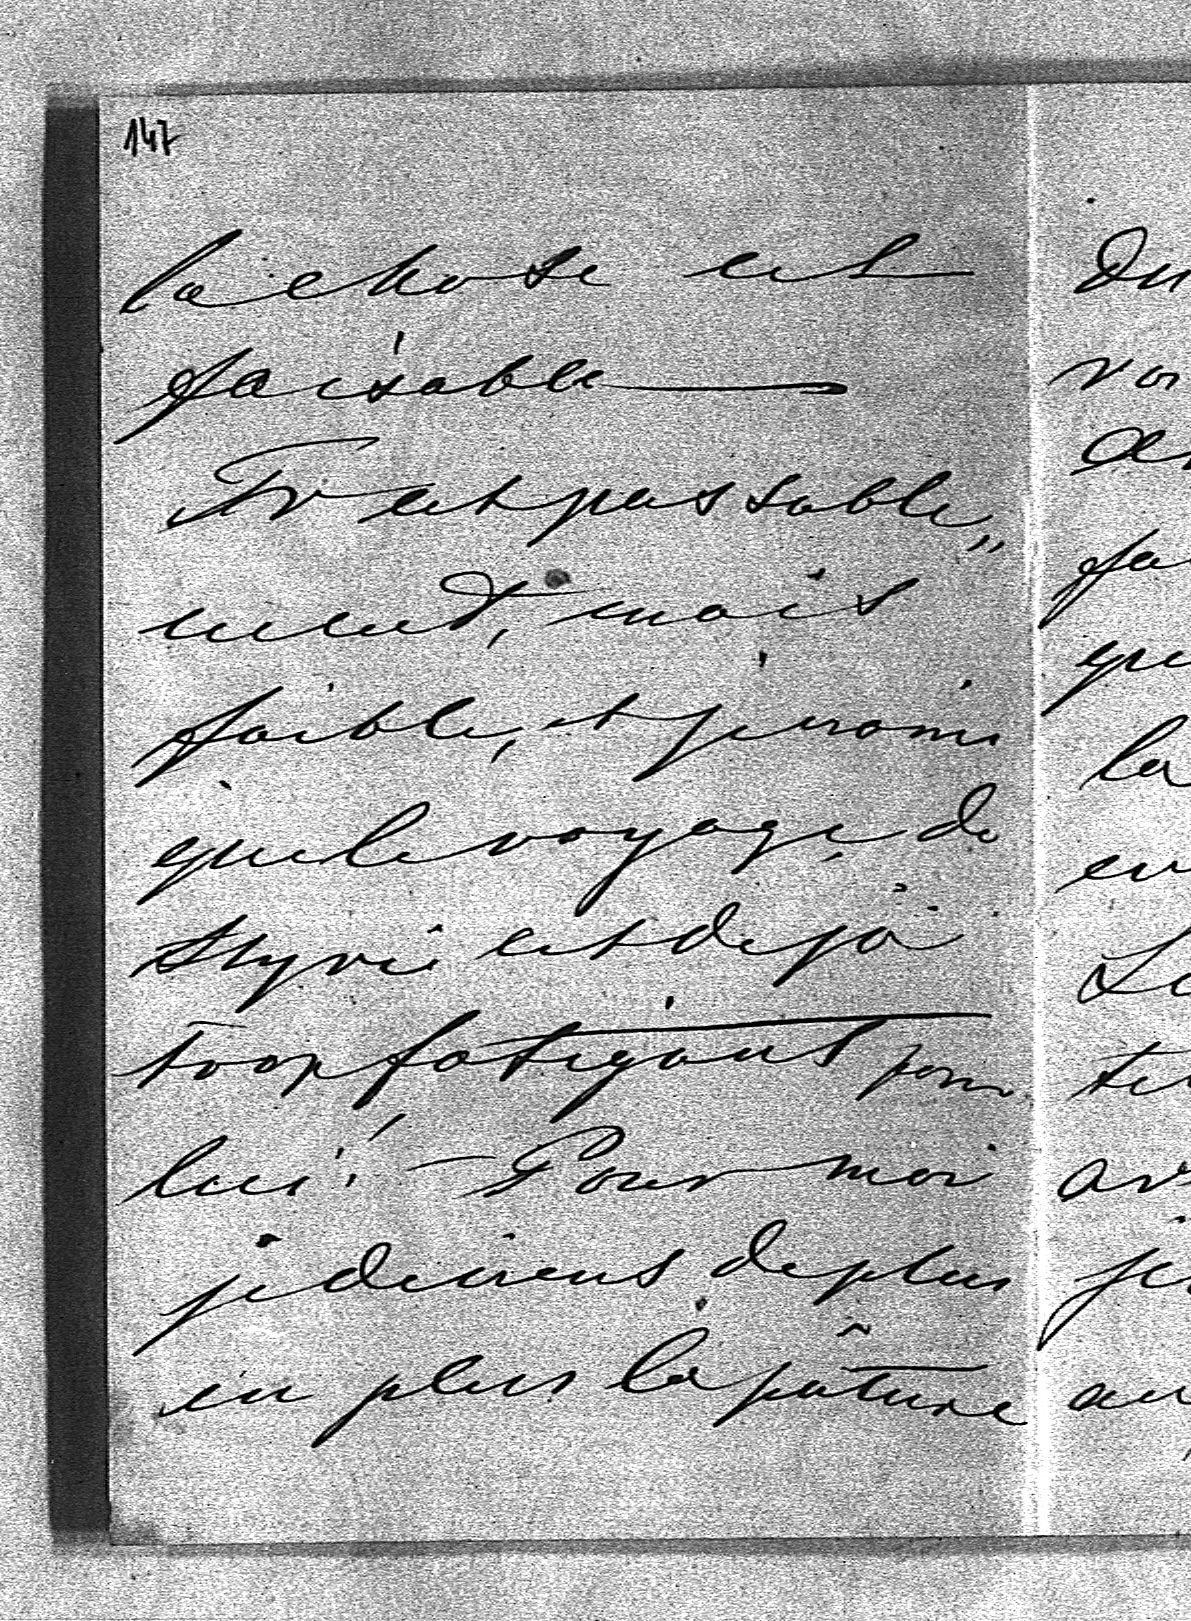 147
la chose est
faisable
Fr est passable„
ment, mais
faible, et je crains
que le voyage de
Styrie est déja
trop fatigant pour
lui! – Pour moi
je deviens de plus
en plus la pâture